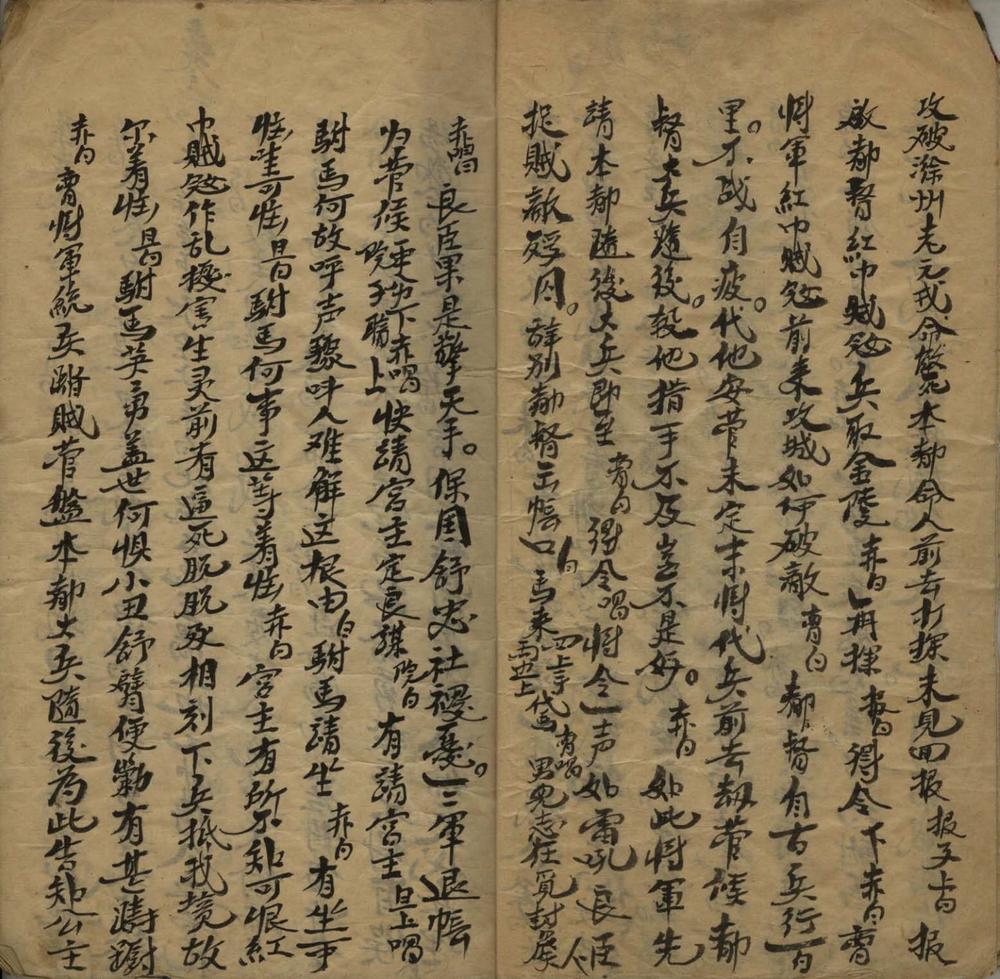 攻破滁州老元戎命鰲本都命人前去打探未見回报 报子上白 报
啟都督紅巾賊發兵取金陵 赤白 再探 报白 得令 下 赤白 曹
将軍紅巾賊發前来攻城如何破敵 曹白 都督自古兵行百
里。不战自疲。代他安营未定末将代兵前去劫营候都
督大兵隨後。殺他措手不及豈不是好。 赤白 如此将軍先
請本都隨後大兵即至 曹白 得令 唱 将令一声如雷吼良臣
捉賊敵 因。辞别都督去帳口 白 馬来 四上手代馬上 曹唱 男児志在覓封侯 下
赤唱 良臣果是擎天手。保国舒忠社稷憂。三軍退帳
为营侯 更衣下 赤唱 快請宮主定良謀 院子 上 院白 有請宮主 旦上唱
駙馬何故呼声驟叫人难解这根由 白 駙馬請坐 赤白 有坐 可
怪哇可怪 旦白 駙馬何事这等着怪 赤白 宮主有所不知可恨紅
巾賊發作乱擾害生灵前有逼死脱脱 相刻下兵抵我境故
尔着怪 旦白 駙馬英勇盖世何惧小丑舒臂便剿有甚躊躕
赤白 曹将軍統兵 賊营盤本都大兵隨後為此告知公主